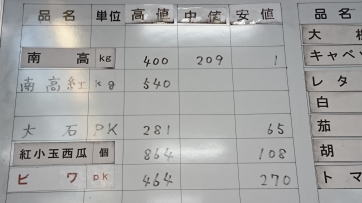 品名 単位 高値 中値 安値 品名
南高 kg 400 209 1
南高紅 kg 540
大石 PK 281 65
紅小玉西瓜 個 864 108
ビワ pk 464 270
大
キャベ
レタ
白
茄
胡
トマ